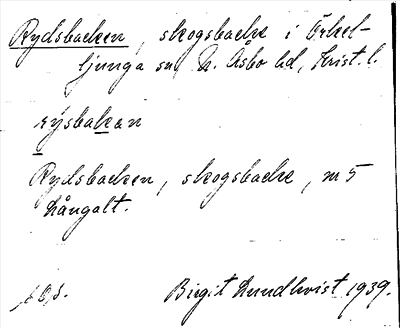 Rydsbacken, skogsbacke i Örkel-
ljunga sn N. Åsbo hd, Krist. l.
rýsbakan
Rydsbacken, skogsbacke, m 5
Långalt.
Birgit Lundkvist 1939.